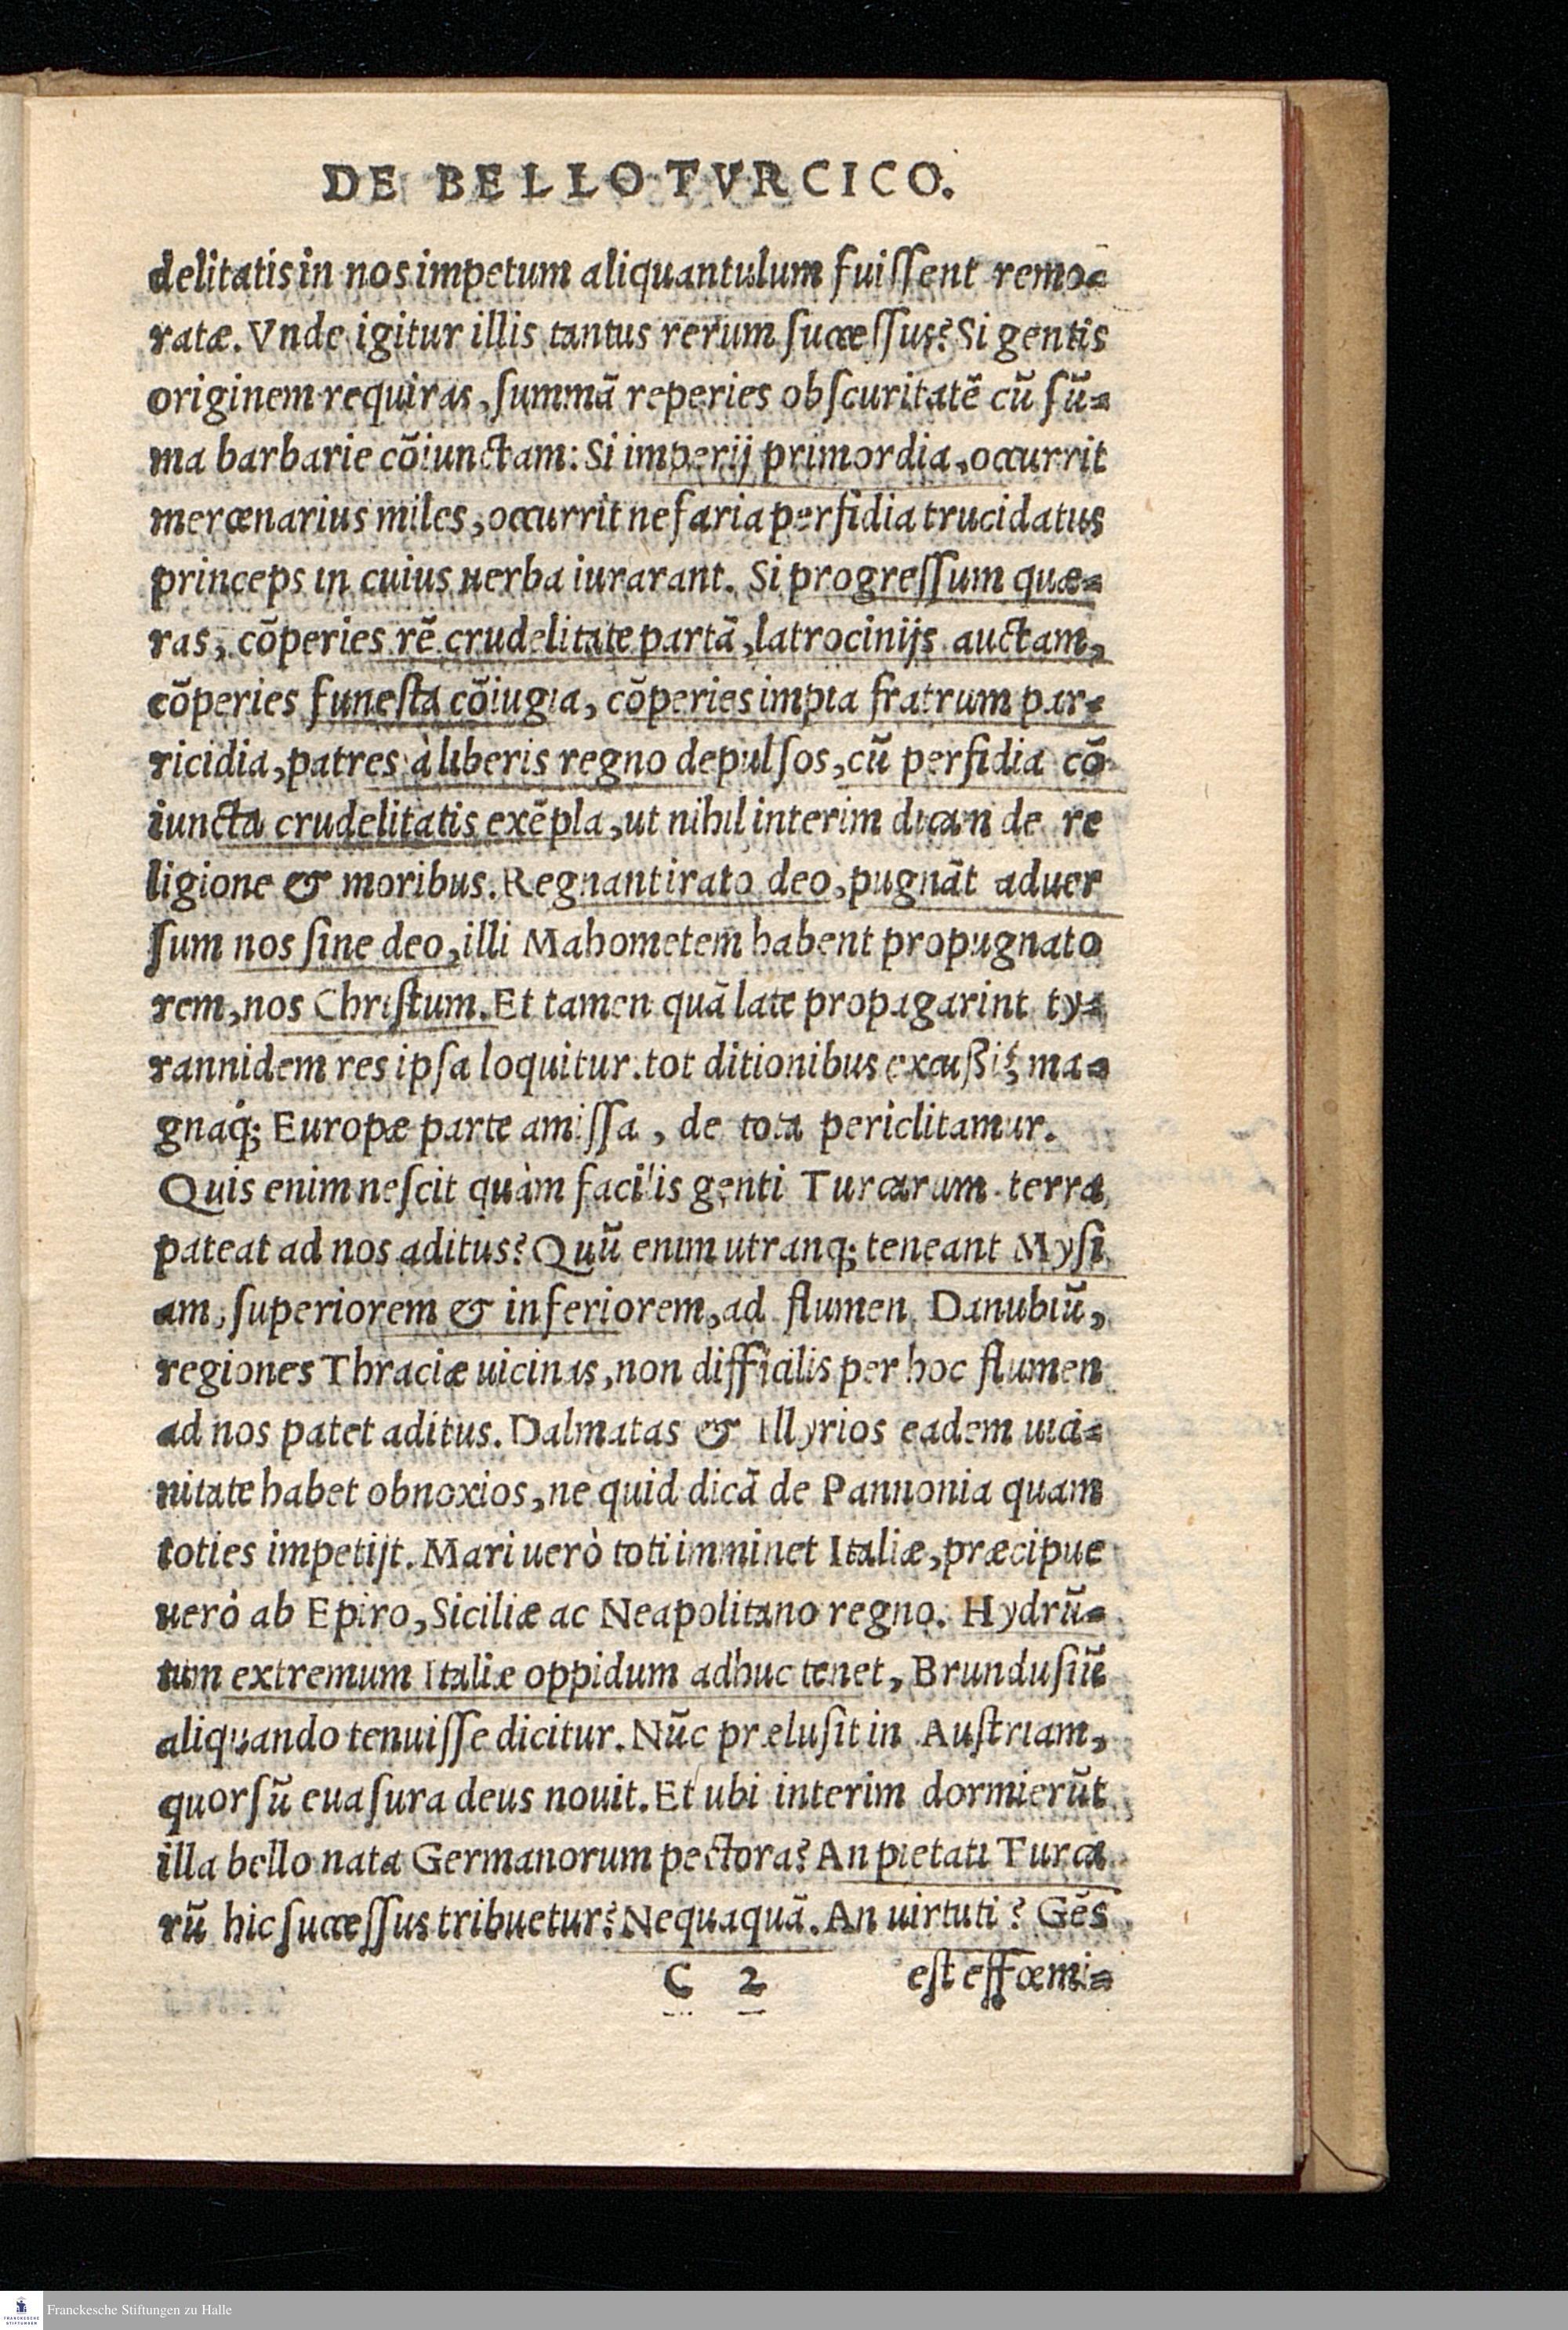 DE BELLO TVRCICO.
delitatis in nos impetum aliquantulum fuiſſent remo-
ratæ. Vnde igitur illis tantus rerum ſucceſſus? Si gentis
originem requiras, ſummā reperies obſcuritatē cū ſū-
ma barbarie cōiunctam: Si imperij primordia, occurrit
mercenarius miles, occurrit nefaria perfidia trucidatus
princeps in cuius uerba iurarant. Si progreſſum quæ-
ras, cōperies rē crudelitate partā, latrocinijs auctam,
cōperies funeſta cōiugia, cōperies impia fratrum par-
ricidia, patres à liberis regno depulſos, cū perfidia cō
iuncta crudelitatis exēpla, ut nihil interim dicam de re
ligione & moribus. Regnant irato deo, pugnāt aduer
ſum nos ſine deo, illi Mahometem habent propugnato
rem, nos Chriſtum. Et tamen quā late propagarint ty-
rannidem res ipſa loquitur. tot ditionibus excußiq; ma-
gnaq́; Europæ parte amiſſa, de tota periclitamur.
Quis enim neſcit quàm facilis genti Turcarum terra
pateat ad nos aditus? Quū enim utranq; teneant Myſi
am, ſuperiorem & inferiorem, ad flumen Danubiū,
regiones Thraciæ uicinas, non difficilis per hoc flumen
ad nos patet aditus. Dalmatas & Illyrios eadem uici-
nitate habet obnoxios, ne quid dicā de Pannonia quam
toties impetijt. Mari uerò toti imminet Italiæ, præcipue
uerò ab Epiro, Siciliæ ac Neapolitano regno. Hydrū-
tum extremum Italiæ oppidum adhuc tenet, Brunduſiū
aliquando tenuiſſe dicitur. Nūc præluſit in Auſtriam,
quorſū euaſura deus nouit. Et ubi interim dormierūt
illa bello nata Germanorum pectora? An pietati Turca
rū hic ſucceſſus tribuetur? Nequaquā. An uirtuti? Gēs
C 2 eſt effœmi-
Franckesche Stiftungen zu Halle
FRANCKESCHE
STIFTUNGEN